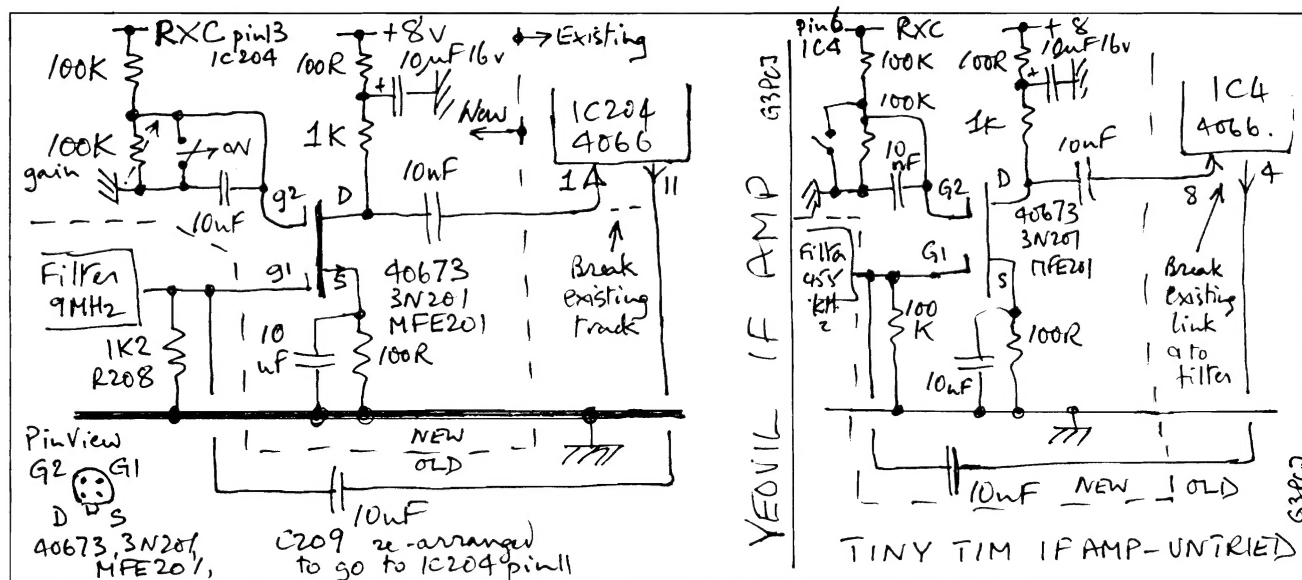 RXC pin13
IC204
100K
100K
gain
ON
10nF
+8v
100R
10µF 16v
1K
Existing
New
IC204
4066
1
11
10nF
g2
D
g1
S
40673
3N201
MFE201
Break
existing
track
Filter
9MHz
1K2
R208
10
nF
100R
NEW
OLD
PinView
G2 G1
D S
40673, 3N201,
MFE201,
10nF
C209 re-arranged
to go to IC204 pin11
YEOVIL IF AMP G3PCJ
pin6
IC4
RXC
100K
100K
10
nF
+8
100R
10µF 16v
1K
10nF
IC4
4066.
8
4
G2
D
G1
S
40673
3N201
MFE201
Filter
455
kHz
100
K
10nF
100R
Break
existing
link
9 to
filter
10nF
NEW OLD
G3PCJ
TINY TIM IF AMP-UNTRIED